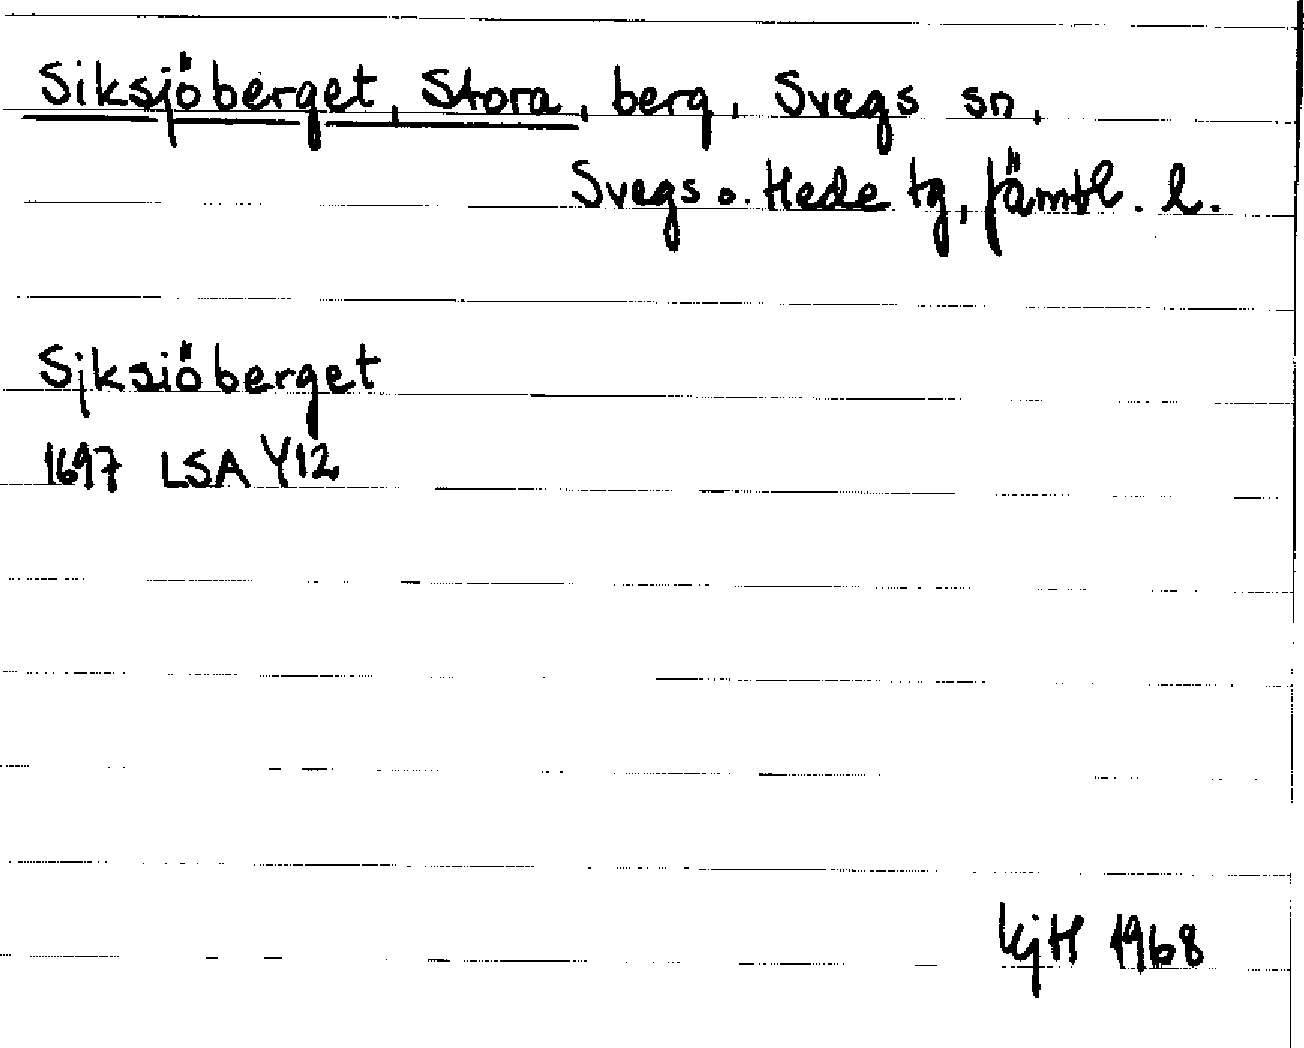 Siksjöberget, Stora, berg, Svegs sn,
Svegs o. Hede tg, Jämtl. l.
Sjksiöberget
1697 LSA Y12
KjH 1968